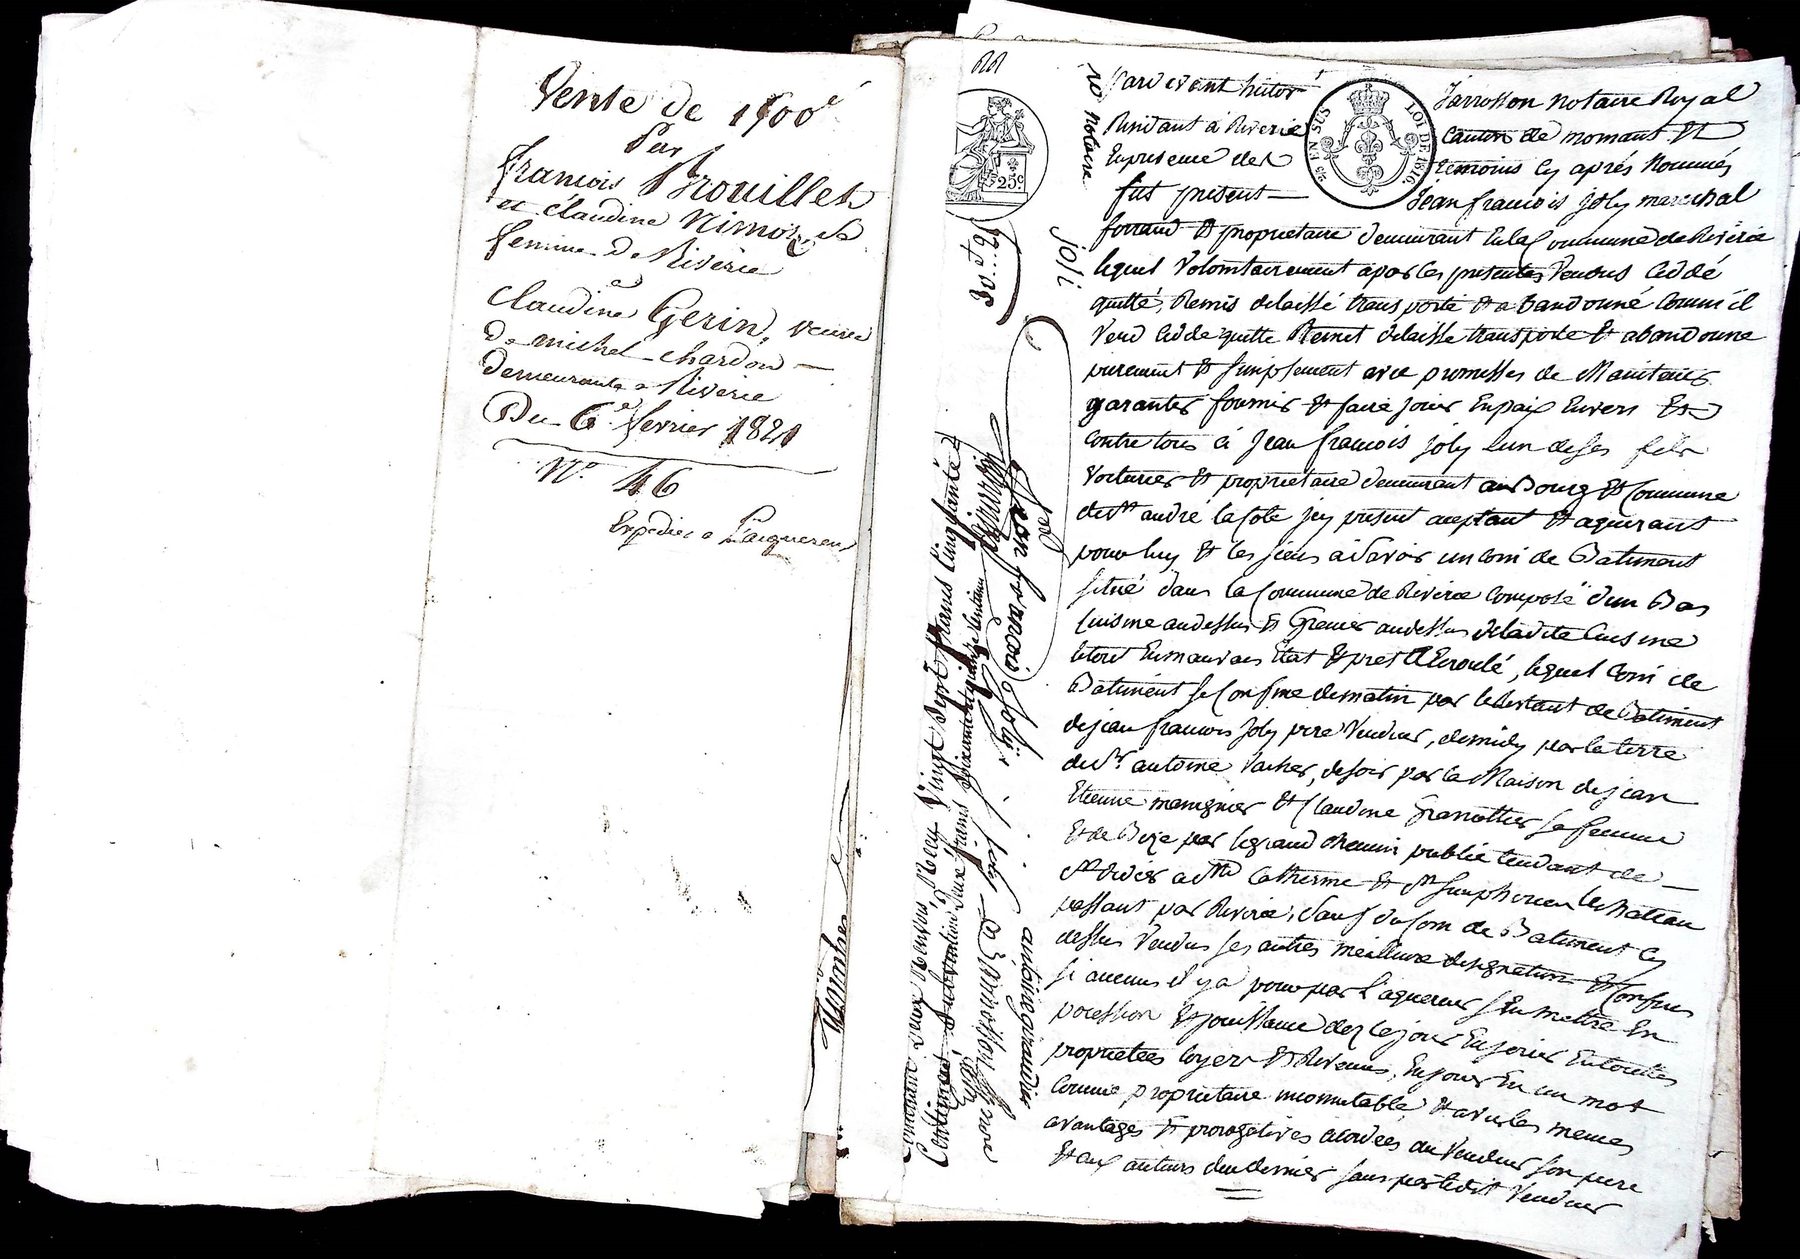 Vente de 1500f
Par
françois Brouillet
et Claudine Nimoz sa
femme de Riverie
a
Claudine Gerin, veuve
de michel chardon
demeurante a Riverie
Du 6 fevrier 1821
No. 46
Expediée a L'aquereur
Pardevant hector Jarrosson notaire Royal
Residant à Riverie canton de mornant Et
En presence des temoins Cy aprés Nommés
fut présent Jean françois joly marechal
ferrand Et proprietaire demeurant En la Commune de Riverie
lequel Volontairement a par les presentes Vendus Ceddé
quitté, Remis delaissé transporté Et abandonné Comm'il
Vend Cedde quitte Remet delaisse transporte Et abandonne
purement Et simplement avec promesses de Maintenir
garantir fournir Et faire jouir En paix Envers Et
Contre tous à Jean françois joly L'un de ses fils
Voiturier Et proprietaire demeurant au Bourg Et Commune
de St andré la Cote jcy présent aceptant Et aquerant
pour luy Et les siens à Savoir un Coin de Batiment
situé dans la Commune de Riverie Composé d'un Bas
Cuisine au dessus Et Grenier au dessus de la dite Cuisine
le tout En mauvais Etat Et prest Ecroulé, lequel Coin de
Batiment se Confine de matin par le Restant de Batiment
de jean françois joly pere Vendeur, de midy par la terre
du Sr antoine Vacher, de soir par la Maison de jean
Etienne manignier Et Claudine Granottier sa femme
Et de Bize par le grand chemin public tendant de
St Didier a Ste Catherine Et St Simphorien le chateau
passant par Riverie, Sauf du Coin de Batiment Cy
dessus Vendus ses autres meilleure designation Et Confins
si aucuns il y a pour par l'aquereur s'En mettre En
possession Et jouissance dez Ce jour En jouir En toutes
proprietées loyers Et Revenus, En jouir En un mot
Comme proprietaire incomutable, Et avec les memes
avantages Et prerogatives acordées au Vendeur son pere
Et aux auteurs de ce dernier sans par ledit Vendeur
25c
25c EN SUS
LOI DE 1816.
joli
Jean françois Joly
antoine giraudier